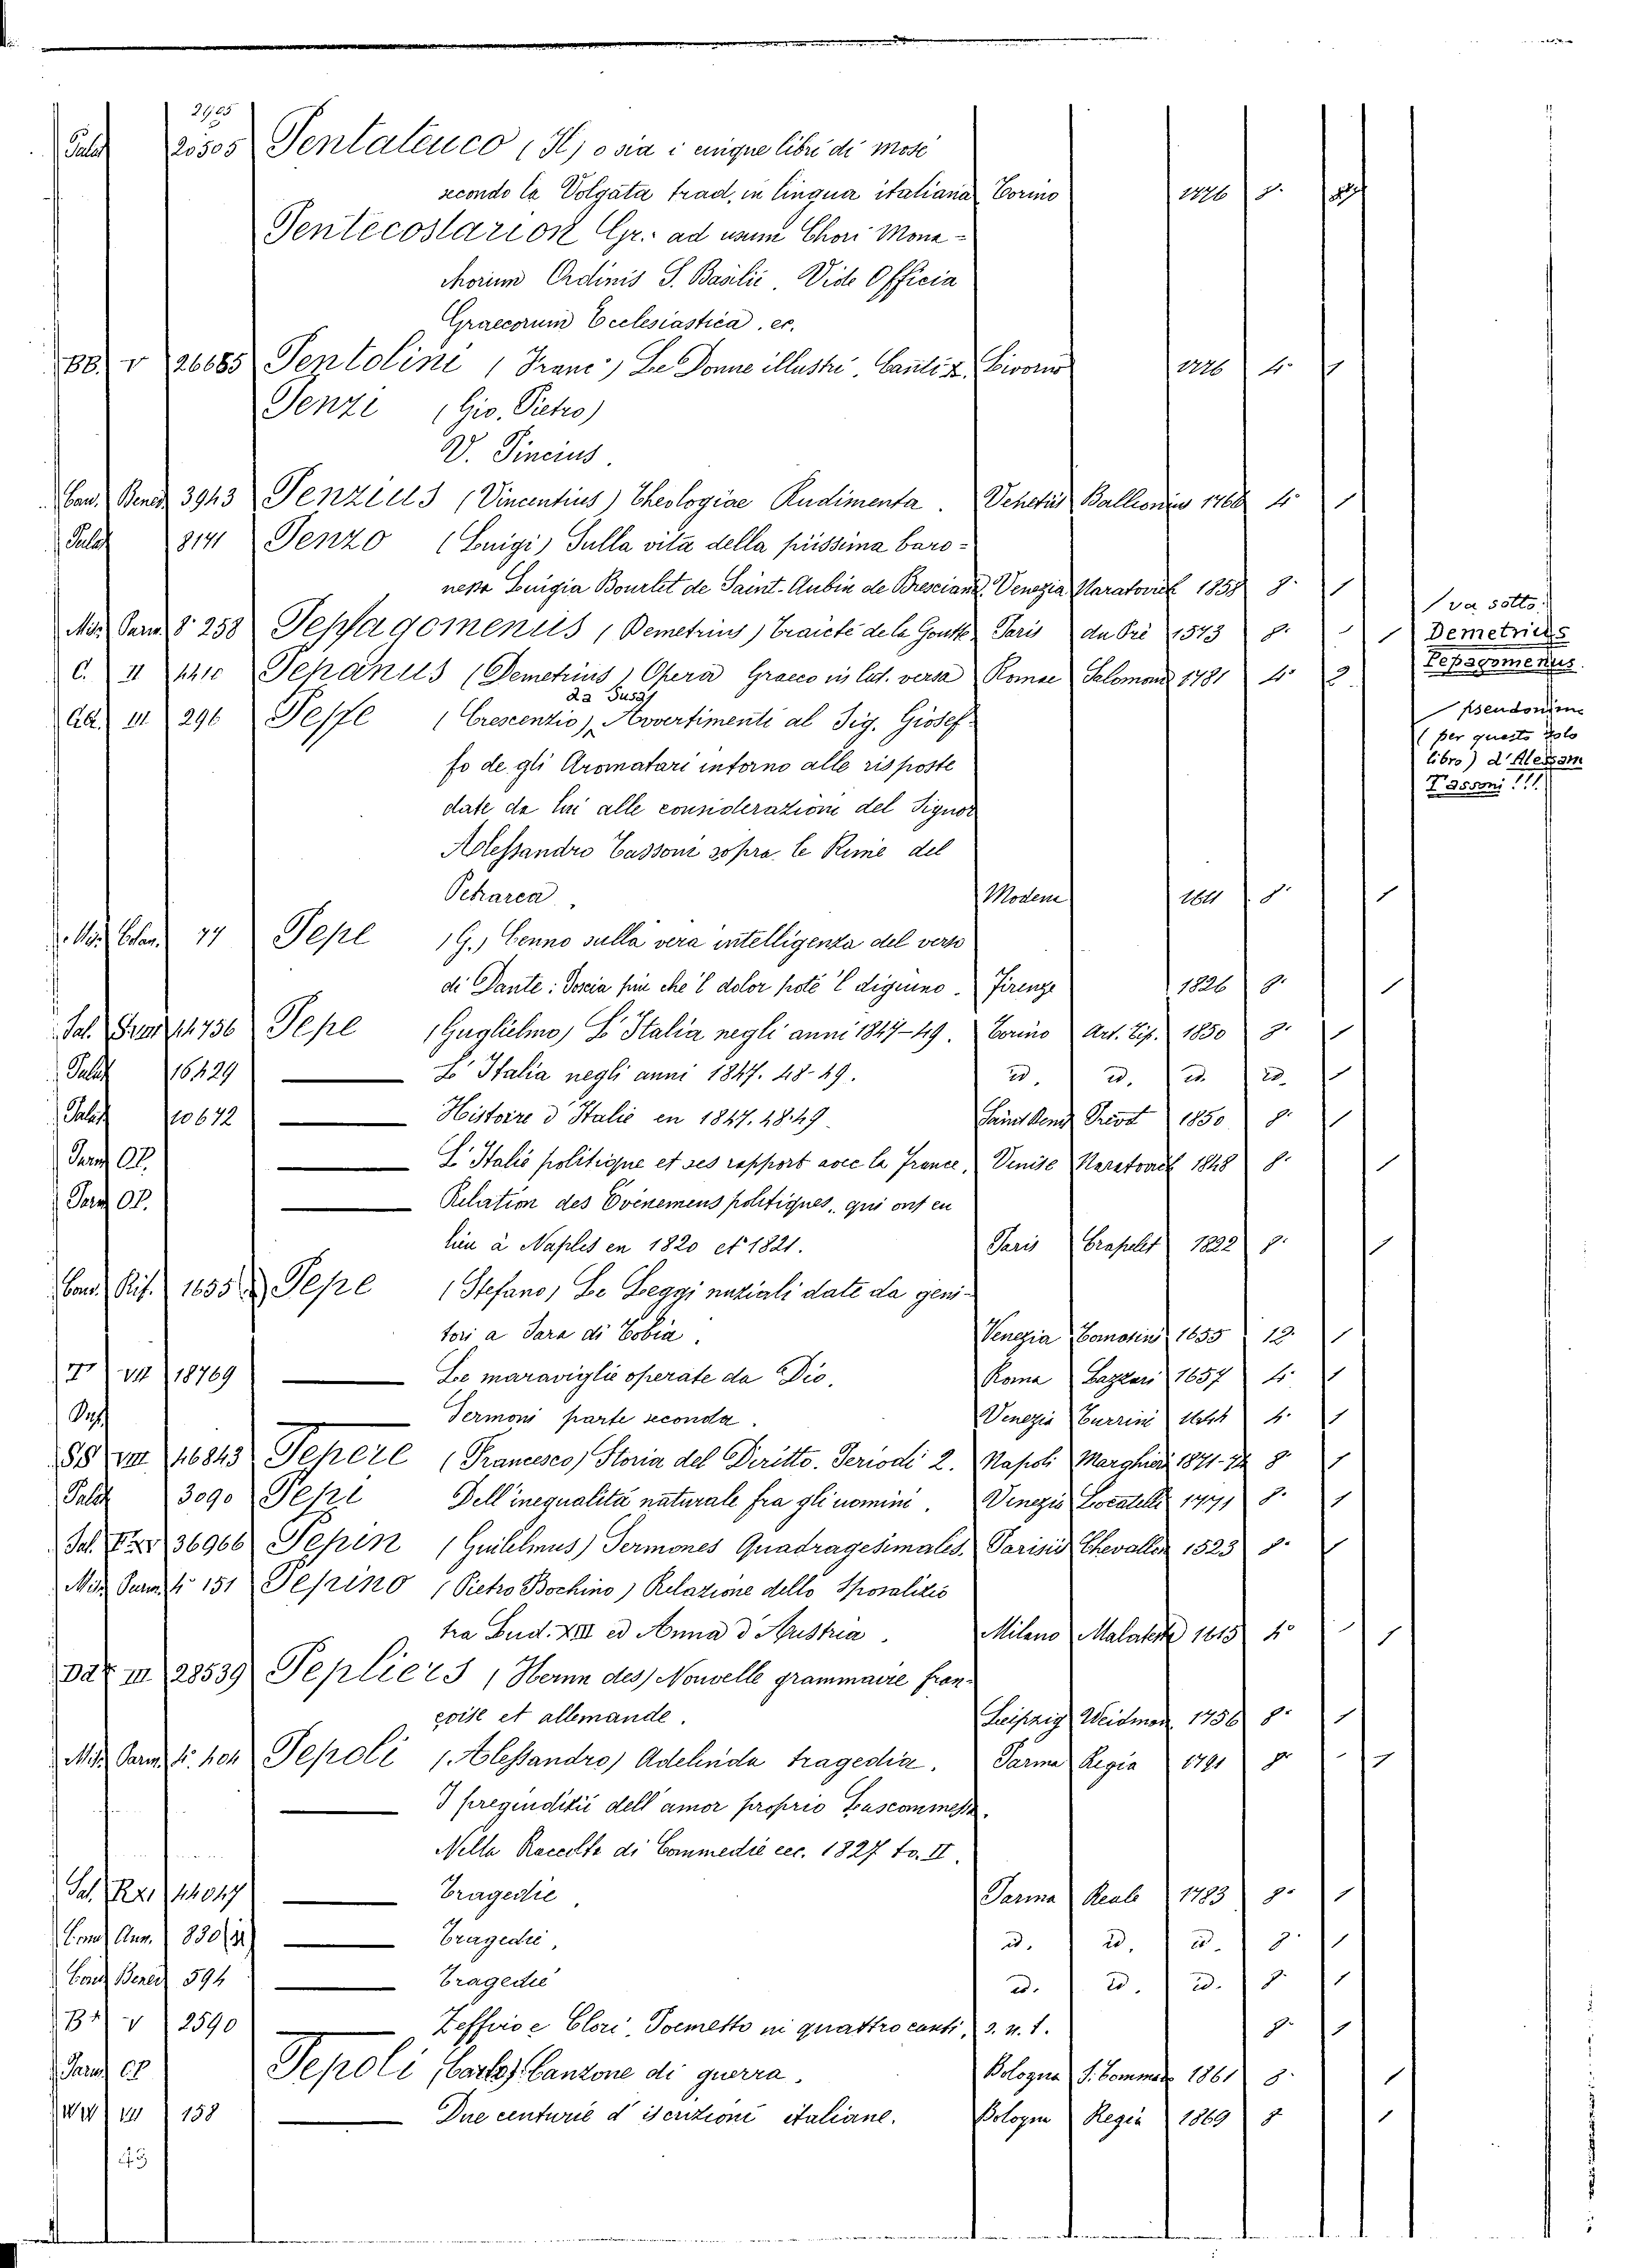 2905
Palat 20505 Pentateuco (Il) o sia i cinque libri di mosè
secondo la Volgata trad. in lingua italiana Torino 1776 8.
Pentecostarion Gr. ad usum Chori Mona-
chorum Ordinis S. Basilii. Vide Officia
Graecorum Ecclesiastica, ec.
BB. V 26685 Pentolini (Franc.) Le Donne illustri. Canti x. Livorno 1776 4. 1
Penzi (Gio. Pietro)
V. Pincius.
Can. Bened. 3943 Penzius (Vincentius) Theologiae Rudimenta. Venetiis Ballionius 1768 4. 1
Palat 8141 Penzo (Luigi) Sulla vita della piissima baro-
nessa Luigia Bourlet de Saint-Aubin de Bresciani. Venezia Naratovich 1858 8. 1
Mis. Parm. 8.° 258 Pepagomenus (Demetrius) Traicté de la Goutte Paris du Pré 1573 8. 1
C. II 4410 Pepanus (Demetrius) Opera Graeco in lat. versa Romae Salomoni 1781 4. 2
da Susa
AA. III 296 Pepe (Crescenzio), Avvertimenti al Sig. Giosef-
fo de gli Aromatari intorno alle risposte
date da lui alle considerazioni del Signor
Alessandro Tassoni sopra le Rime del
Petrarca. Modena 1611 8. 1
Mis. Colon. 77 Pepe (G.) Cenno sulla vera intelligenza del verso
di Dante: Poscia più che 'l dolor poté 'l digiuno. Firenze 1826 8. 1
Sal. 14756 Pepe (Guglielmo) L'Italia negli anni 1847-49. Torino Art. Tip. 1850 8. 1
Palat 16429 L'Italia negli anni 1847. 48-49. id. id. id. id. 1
Palat 10672 Histoire d'Italie en 1847. 48. 49. Saint Denis Prevot 1850 8. 1
Parm OP. L'Italie politique et ses rapport avec la France, Venise Naratovich 1848 8. 1
Parm OP. Relation des Evènemens politiques, qui ont eu
lieu à Naples en 1820 et 1821. Paris Crapelet 1822 8. 1
Cand. Rif. 1655 Pepe (Stefano) Le Leggi nuziali date da geni-
tori a Sara di Tobia. Venezia Tomasini 1655 12. 1
VII 18769 Le maraviglie operate da Dio. Roma Lazzari 1657 4. 1
Sermoni parte seconda. Venezia Turrini 4. 1
SS VIII 46843 Pepere (Francesco) Storia del Diritto. Periodi 2. Napoli Marghieri 1871-72 8. 1
Palat 3090 Pepi Dell'inequalità naturale fra gli uomini. Venezia Locatelli 1771 8. 1
Sal. 36966 Pepin (Guilelmus) Sermones Quadragesimales. Parisiis Chevallon 1523 8. 1
Mis. Parm. 4.° 151 Pepino (Pietro Bochino) Relazione dello Sposalizio
tra Lud. XIII ed Anna d'Austria. Milano Malatesta 1615 4° 1
III 28539 Pepliers (Herrn des) Nouvelle grammaire fran-
çoise et allemande. Leipzig Weidman 1756 8. 1
Mis. Parm. 4. 404 Pepoli (Alessandro) Adelinda tragedia. Parma Regia 1791 8° 1
I pregiudizii dell'amor proprio Lascommessa.
Nella Raccolta di Commedie ecc. 1827 to. II.
Sal. 44047 Tragedie. Parma Reale 1783 8° 1
Ann. 830 Tragedie. id. id. id. 8. 1
Bened. 594 Tragedie id. id. id. 8. 1
V 2590 Zeffiro e Clori. Poemetto in quattro canti, s. n. t. 8. 1
Parm OP Pepoli (Carlo) Canzone di guerra. Bologna S. Tommaso 1861 8. 1
VII 158 Due centurie d'iscrizioni italiane. Bologna Regia 1869 8 1
43
va sotto:
Demetrius
Pepagomenus.
pseudonimo
(per questo solo
libro) d'Alessan
Tassoni!!!